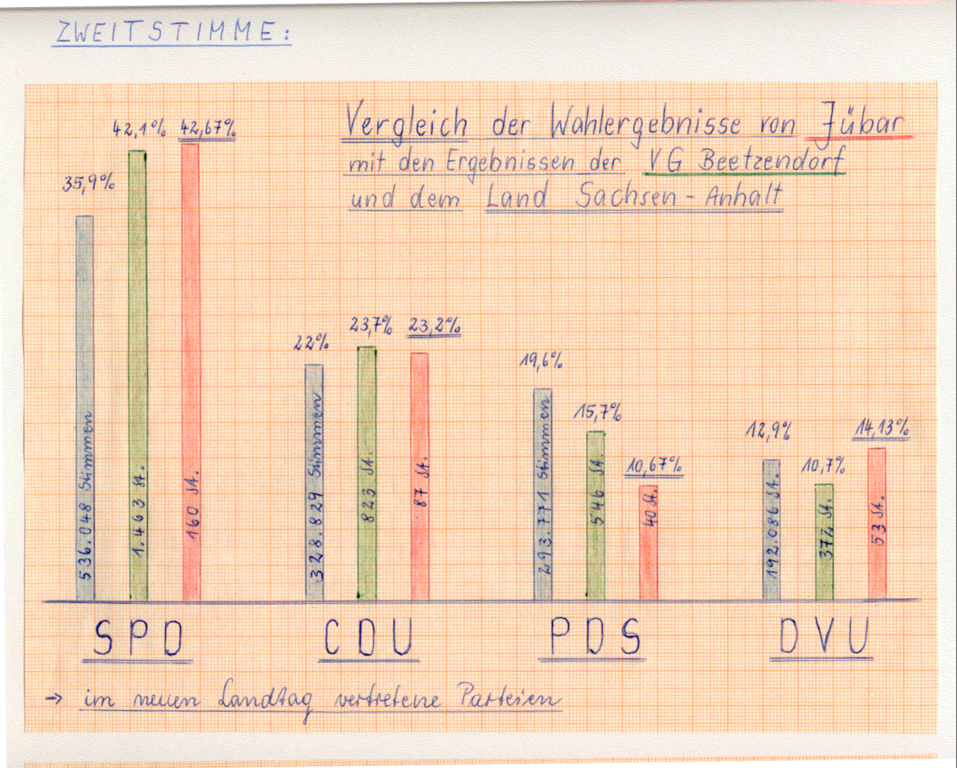 ZWEITSTIMME:
Vergleich der Wahlergebnisse von Jübar
mit den Ergebnissen der VG Beetzendorf
und dem Land Sachsen-Anhalt
35,9% 42,1% 42,67%
536.048 Stimmen 1.463 St. 160 St.
22% 23,7% 23,2%
328.829 Stimmen 823 St. 87 St.
19,6% 15,7% 10,67%
293.771 Stimmen 546 St. 40 St.
12,9% 10,7% 14,13%
192.086 St. 372 St. 53 St.
SPD CDU PDS DVU
→ im neuen Landtag vertretene Parteien